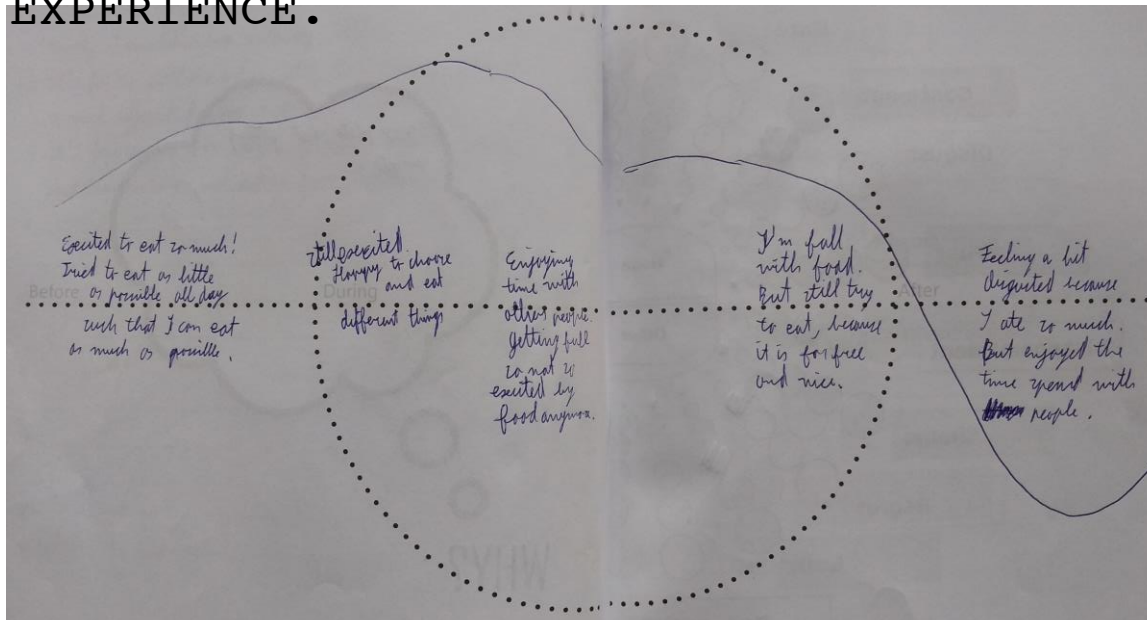 EXPERIENCE.
Excited to eat so much!
Tried to eat as little
as possible all day
such that I can eat
as much as possible.
Before
still excited
Happy to choose
and eat
different things
During
Enjoying
time with
other people.
getting full
so not so
excited by
food anymore.
I'm full
with food.
But still try
to eat, because
it is for free
and nice.
After
Feeling a bit
disgusted because
I ate so much.
But enjoyed the
time spend with
people.
WHY?